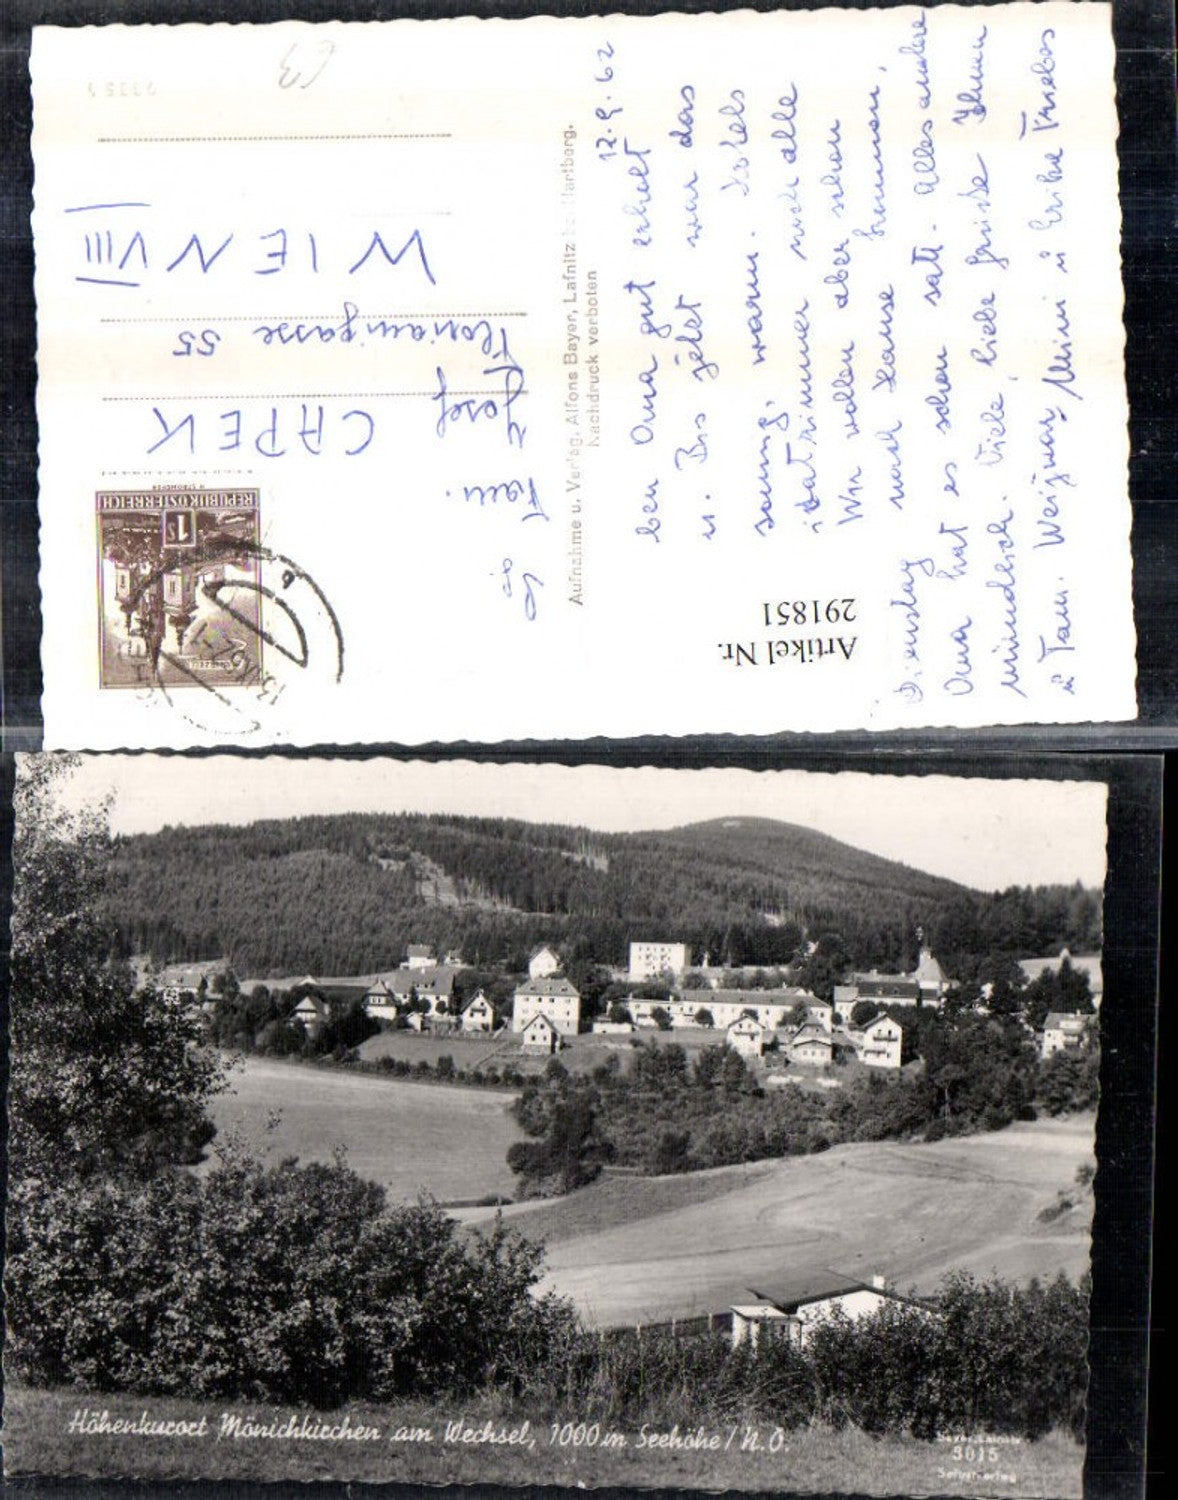 12.9.62
ben Oma gut erholt
u. Bis jetzt war das
sonnig, warm. Hotels
sind immer noch alle
Wir wollen aber schon
Dienstag nach Hause kommen,
Oma hat es schon satt. Alles andere
mündlich. Viele, liebe Grüße Ihnen
u Fam. Weizmar, Mimi u Erika
Artikel Nr.
291851
Aufnahme u. Verlag. Alfons Bayer, Lafnitz bei Hartberg.
Nachdruck verboten
REPUBLIK ÖSTERREICH
1S
Fam.
Josef CAPEK
Florianigasse 55
WIEN VIII
Höhenkurort Mönichkirchen am Wechsel, 1000 m Seehöhe / N.Ö.
3015
Selbstverlag